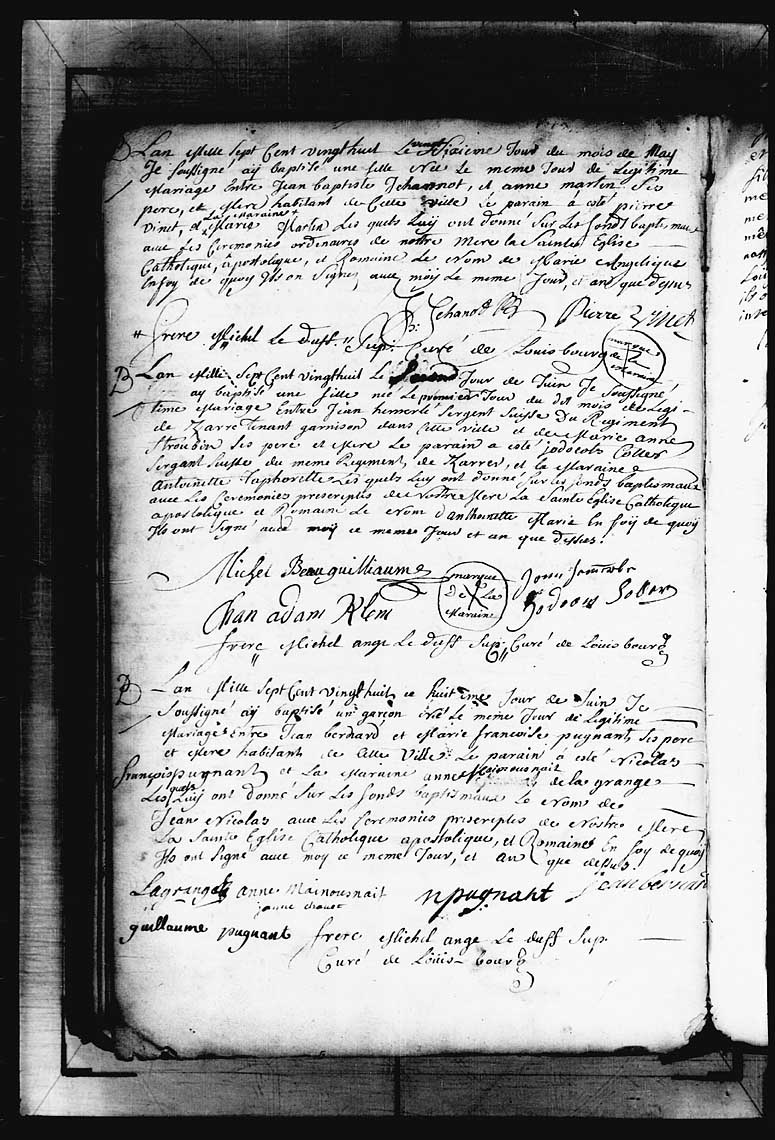 B Lan Mille Sept Cent vingthuit Le vingt Sixieme Jour du mois de May
Je Soussigné ay baptisé une fille née Le meme Jour de Legitime
Mariage Entre Jean baptiste Jehannot, et anne martin Ses
pere, et Mere habitant de Cette ville Le parain à esté pierre
Vinet, et La Maraine Marie Martin Les quels Luy ont donné Sur Les fonds baptismaux
avec Les Ceremonies ordinaires de notre Mere La Sainte Eglise
Catholique, âpostolique, et Romaine Le Nom de Marie Angelique
Enfoy de quoy Ils on Signez avec moÿ Le meme Jour, et an que dessus
Jehanot Pierre Vinet
frere Michel Le duff Sup. Curé de Louisbourg
marque de la Maraine
B Lan Mille Sept Cent vingthuit Le Second Jour de Juin Je Soussigné
ay baptisé une fille neé Le premier Jour du dit mois de Legi-
time Mariage Entre Jean hemerlé Sergent Suisse Du Regiment
de Karre Tenant garnison dans Cette ville et de Marie anne
Stroubin Ses peré et Mere Le parain a esté Jodocols Coller
Sergant Suisse du meme Regiment de Karrer, et La Maraine
Antoinette Taphorette Les quels Luy ont donné Sur Les fonds baptismaux
avec Les Ceremonies prescriptes de Nostre Mere La Sainte Eglise Catholique
apostolique et Romaine Le Nom d'anthoinette Marie En foÿ de quoy
Ils ont Signé avec moy ce meme Jour et an que dessus.
Michel Beauguilliaume
marque de La Maraine
Chan adam Klem
frere Michel ange Le duff Sup. Curé de Louisbourg
B Lan Mille Sept Cent vingthuit ce huitième Jour de Juin Je
Soussigné aÿ baptisé un garçon né Le meme Jour de Legitime
Mariage Entre Jean bernard et Marie francoise pugnant, Ses pere
et Mere habitant de Cette Ville. Le parain à esté Nicolas
françois pugnant et La Maraine anne Mainousnait de La grange
Les quels Luy ont donné Sur Les fonds baptismaux Le Nom de
Jean Nicolas avec Les Ceremonies prescriptes de Nostre Mere
La Sainte Eglise Catholique apostolique, et Romaine En foy de quoÿ
Ils ont Signé avec moy ce meme Jour, et an que dessus.
Lagrange anne Mainousnait npugnant Jean bernard
guillaume pugnant frere Michel ange Le duff Sup
Curé de Loüis-bourg